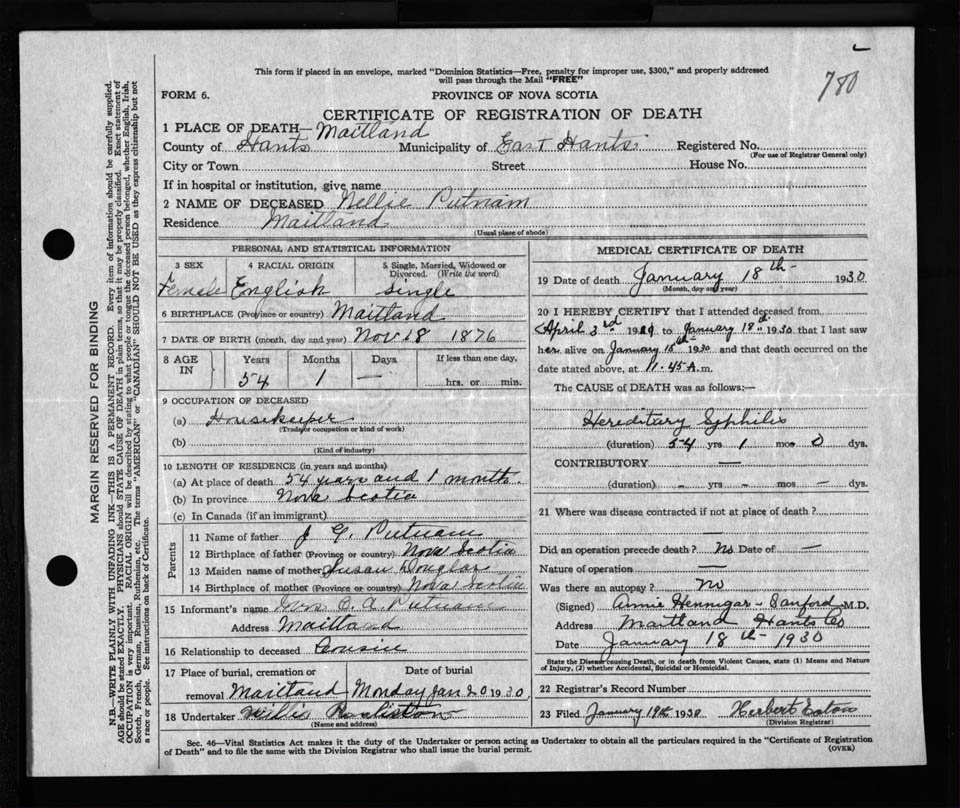 780
This form if placed in an envelope, marked "Dominion Statistics—Free, penalty for improper use, $300," and properly addressed
will pass through the Mail "FREE"
FORM 6.
PROVINCE OF NOVA SCOTIA
CERTIFICATE OF REGISTRATION OF DEATH
1 PLACE OF DEATH— Maitland
County of Hants Municipality of East Hants Registered No.
(For use of Registrar General only)
City or Town Street House No.
If in hospital or institution, give name
2 NAME OF DECEASED Nellie Putnam
Residence Maitland
(Usual place of abode)
MARGIN RESERVED FOR BINDING
N.B.—WRITE PLAINLY WITH UNFADING INK—THIS IS A PERMANENT RECORD. Every item of information should be carefully supplied.
AGE should be stated EXACTLY. PHYSICIANS should STATE CAUSE OF DEATH in plain terms, so that it may be properly classified. Exact statement of
OCCUPATION is very important. RACIAL ORIGIN will be described by stating to what people or tongue the deceased person belonged, whether English, Irish,
Scotch, French, German, Russian, Ruthenian, etc. The terms "AMERICAN" or "CANADIAN" SHOULD NOT BE USED as they express citizenship but not
a race or people. See instructions on back of Certificate.
PERSONAL AND STATISTICAL INFORMATION
3 SEX
Female
4 RACIAL ORIGIN
English
5 Single, Married, Widowed or
Divorced. (Write the word)
Single
6 BIRTHPLACE (Province or country) Maitland
7 DATE OF BIRTH (month, day and year) Nov 18 1876
8 AGE
IN
Years
54
Months
1
Days
—
If less than one day,
hrs. or min.
9 OCCUPATION OF DECEASED
(a) Housekeeper
(Trade or occupation or kind of work)
(b)
(Kind of industry)
10 LENGTH OF RESIDENCE (in years and months)
(a) At place of death 54 years and 1 month.
(b) In province Nova Scotia
(c) In Canada (if an immigrant)
Parents
11 Name of father J. G. Putnam
12 Birthplace of father (Province or country) Nova Scotia
13 Maiden name of mother Susan Douglas
14 Birthplace of mother (Province or country) Nova Scotia
15 Informant's name Mrs Putnam
Address Maitland
16 Relationship to deceased Cousin
17 Place of burial, cremation or
removal Maitland
Date of burial
Monday Jan 20 1930
18 Undertaker Willis
(Name and address)
MEDICAL CERTIFICATE OF DEATH
19 Date of death January 18th 1930
(Month, day and year)
20 I HEREBY CERTIFY that I attended deceased from
April 3rd 1929 to January 18th 1930 that I last saw
her alive on January 18th 1930 and that death occurred on the
date stated above, at 11.45 A.m.
The CAUSE of DEATH was as follows:—
Hereditary Syphilis
(duration) 54 yrs 1 mos 0 dys.
CONTRIBUTORY —
(duration) - yrs - mos - dys.
21 Where was disease contracted if not at place of death?
—
Did an operation precede death? No Date of —
Nature of operation —
Was there an autopsy? No
(Signed) Annie Hennigar-Sanford M.D.
Address Maitland Hants Co
Date January 18th-1930
State the Disease causing Death, or in death from Violent Causes, state (1) Means and Nature
of Injury, (2) whether Accidental, Suicidal or Homicidal.
22 Registrar's Record Number
23 Filed January 19th 1930 Herbert Eaton
(Division Registrar)
Sec. 46—Vital Statistics Act makes it the duty of the Undertaker or person acting as Undertaker to obtain all the particulars required in the "Certificate of Registration
of Death" and to file the same with the Division Registrar who shall issue the burial permit.
(OVER)